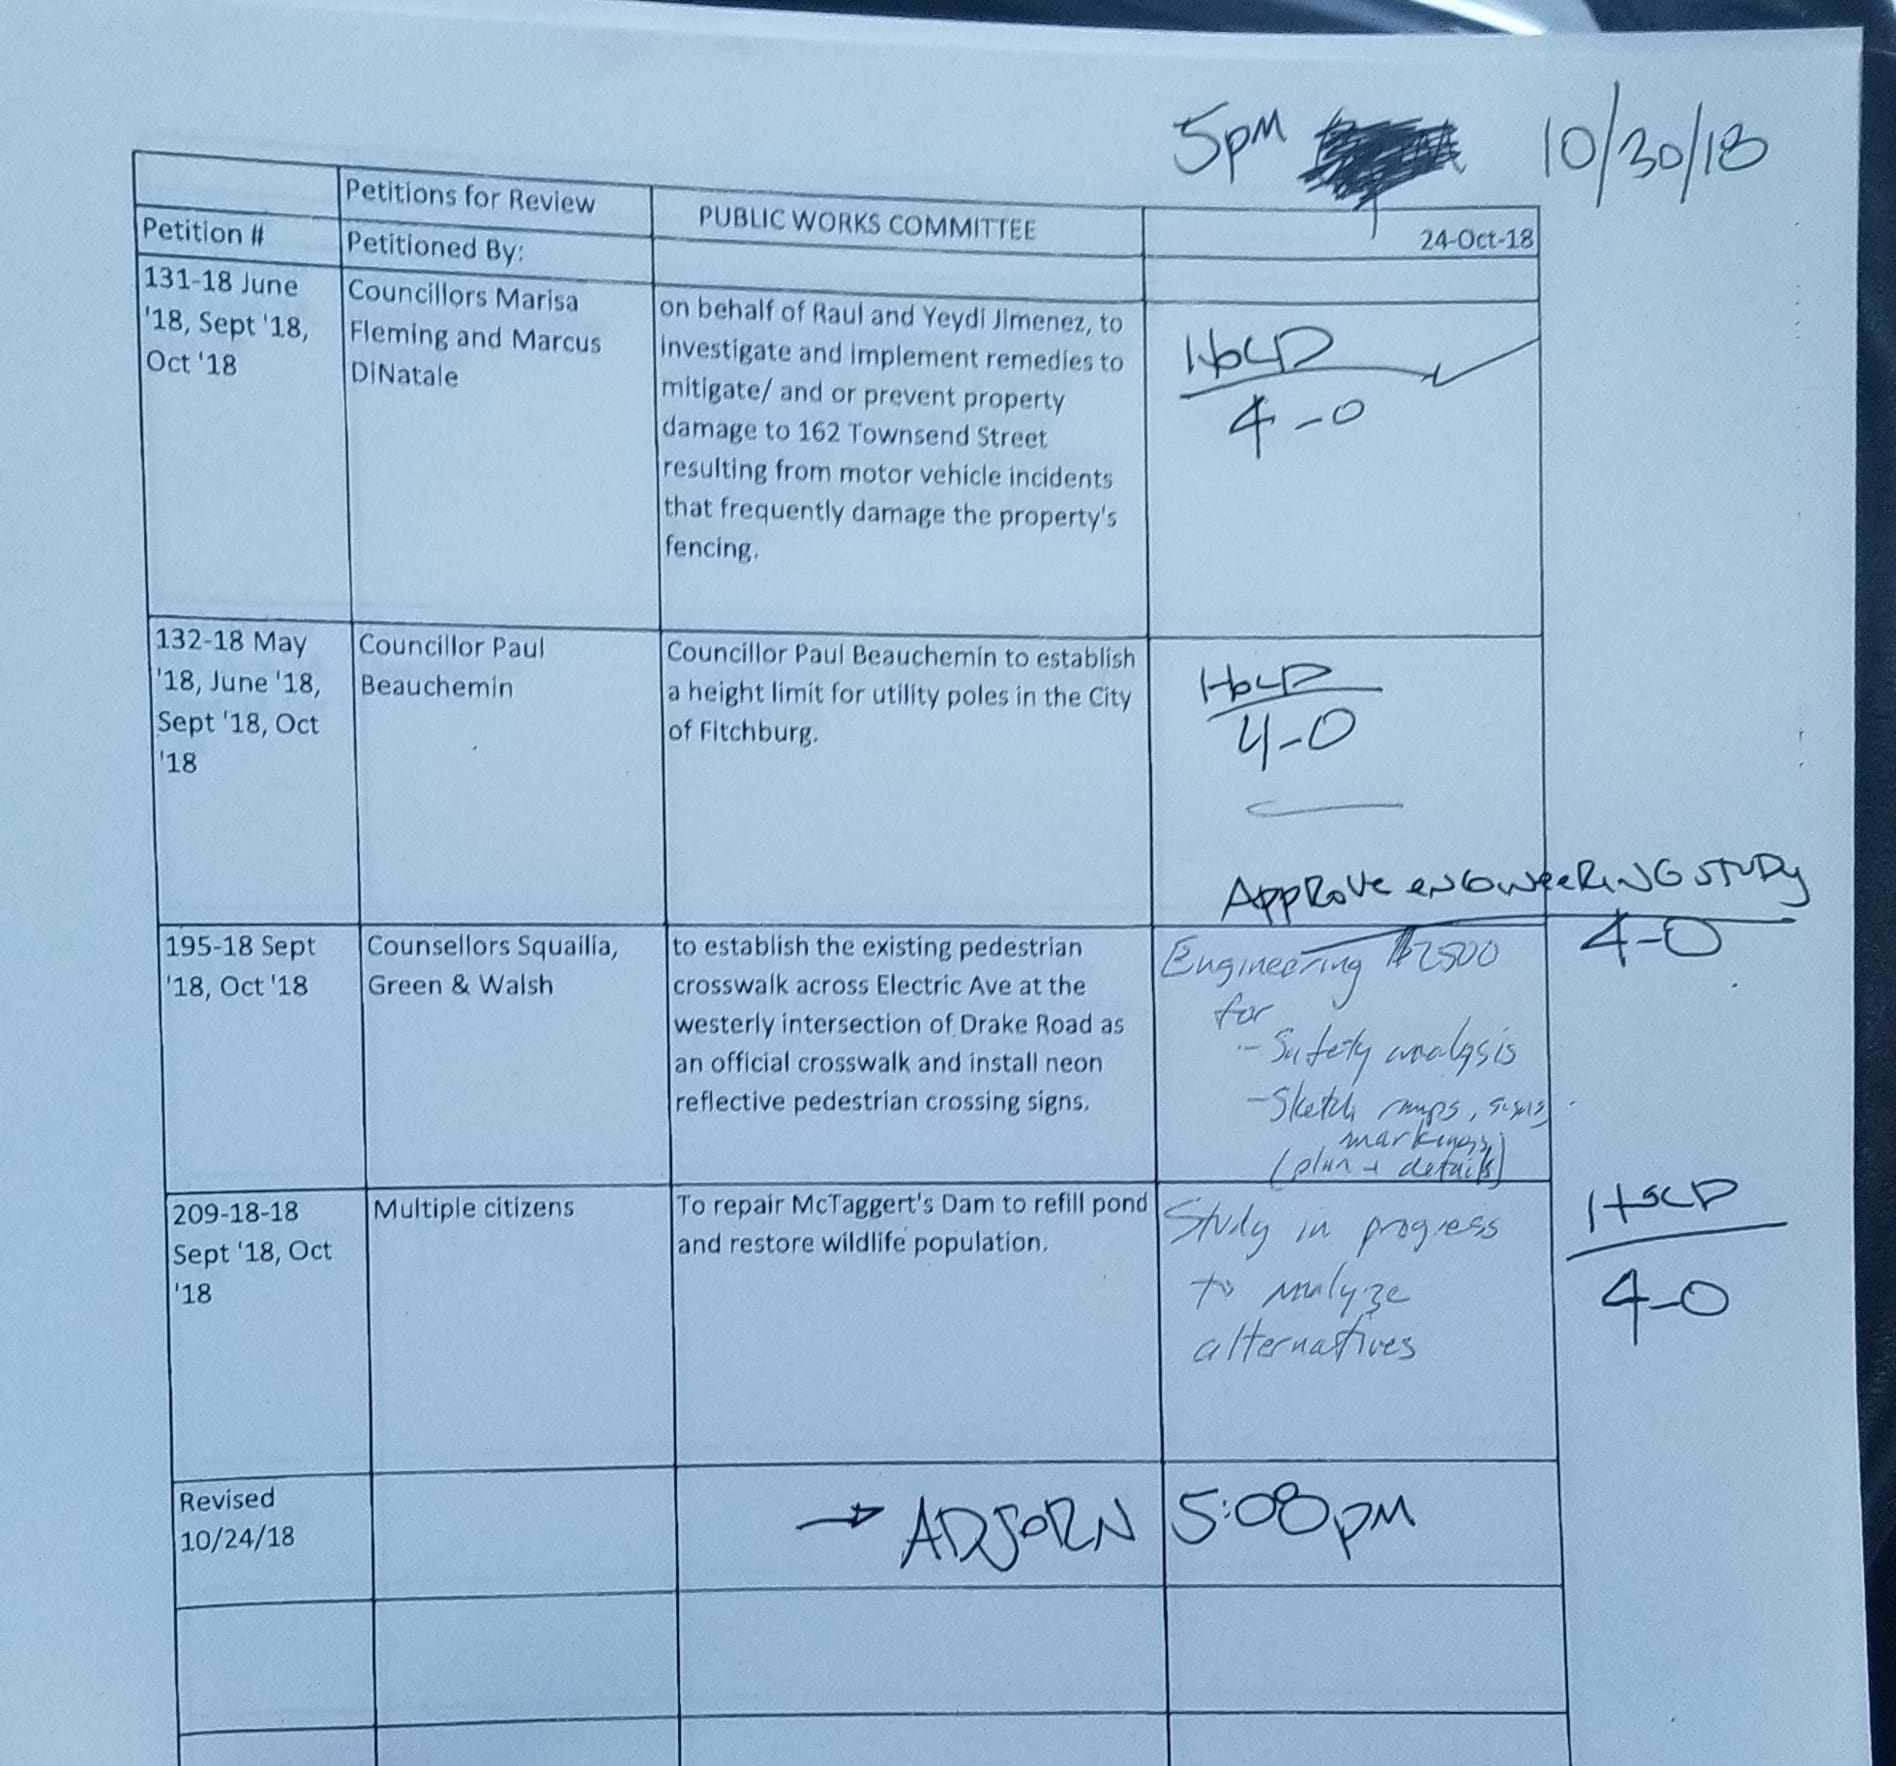 5pm 10/30/18
Petitions for Review
PUBLIC WORKS COMMITTEE
24-Oct-18
Petition #
Petitioned By:
131-18 June
'18, Sept '18,
Oct '18
Councillors Marisa
Fleming and Marcus
DiNatale
on behalf of Raul and Yeydi Jimenez, to
investigate and implement remedies to
mitigate/ and or prevent property
damage to 162 Townsend Street
resulting from motor vehicle incidents
that frequently damage the property's
fencing.
HOLD
4-0
132-18 May
'18, June '18,
Sept '18, Oct
'18
Councillor Paul
Beauchemin
Councillor Paul Beauchemin to establish
a height limit for utility poles in the City
of Fitchburg.
HOLD
4-0
APPROVE ENGINEERING STUDY
4-0
195-18 Sept
'18, Oct '18
Counsellors Squailia,
Green & Walsh
to establish the existing pedestrian
crosswalk across Electric Ave at the
westerly intersection of Drake Road as
an official crosswalk and install neon
reflective pedestrian crossing signs.
Engineering $2500
for
- Safety analysis
- Sketch ramps, signs,
markings
(plan + details)
209-18-18
Sept '18, Oct
'18
Multiple citizens
To repair McTaggert's Dam to refill pond
and restore wildlife population.
Study in progress
to analyze
alternatives
HOLD
4-0
Revised
10/24/18
→ ADJORN 5:08pm